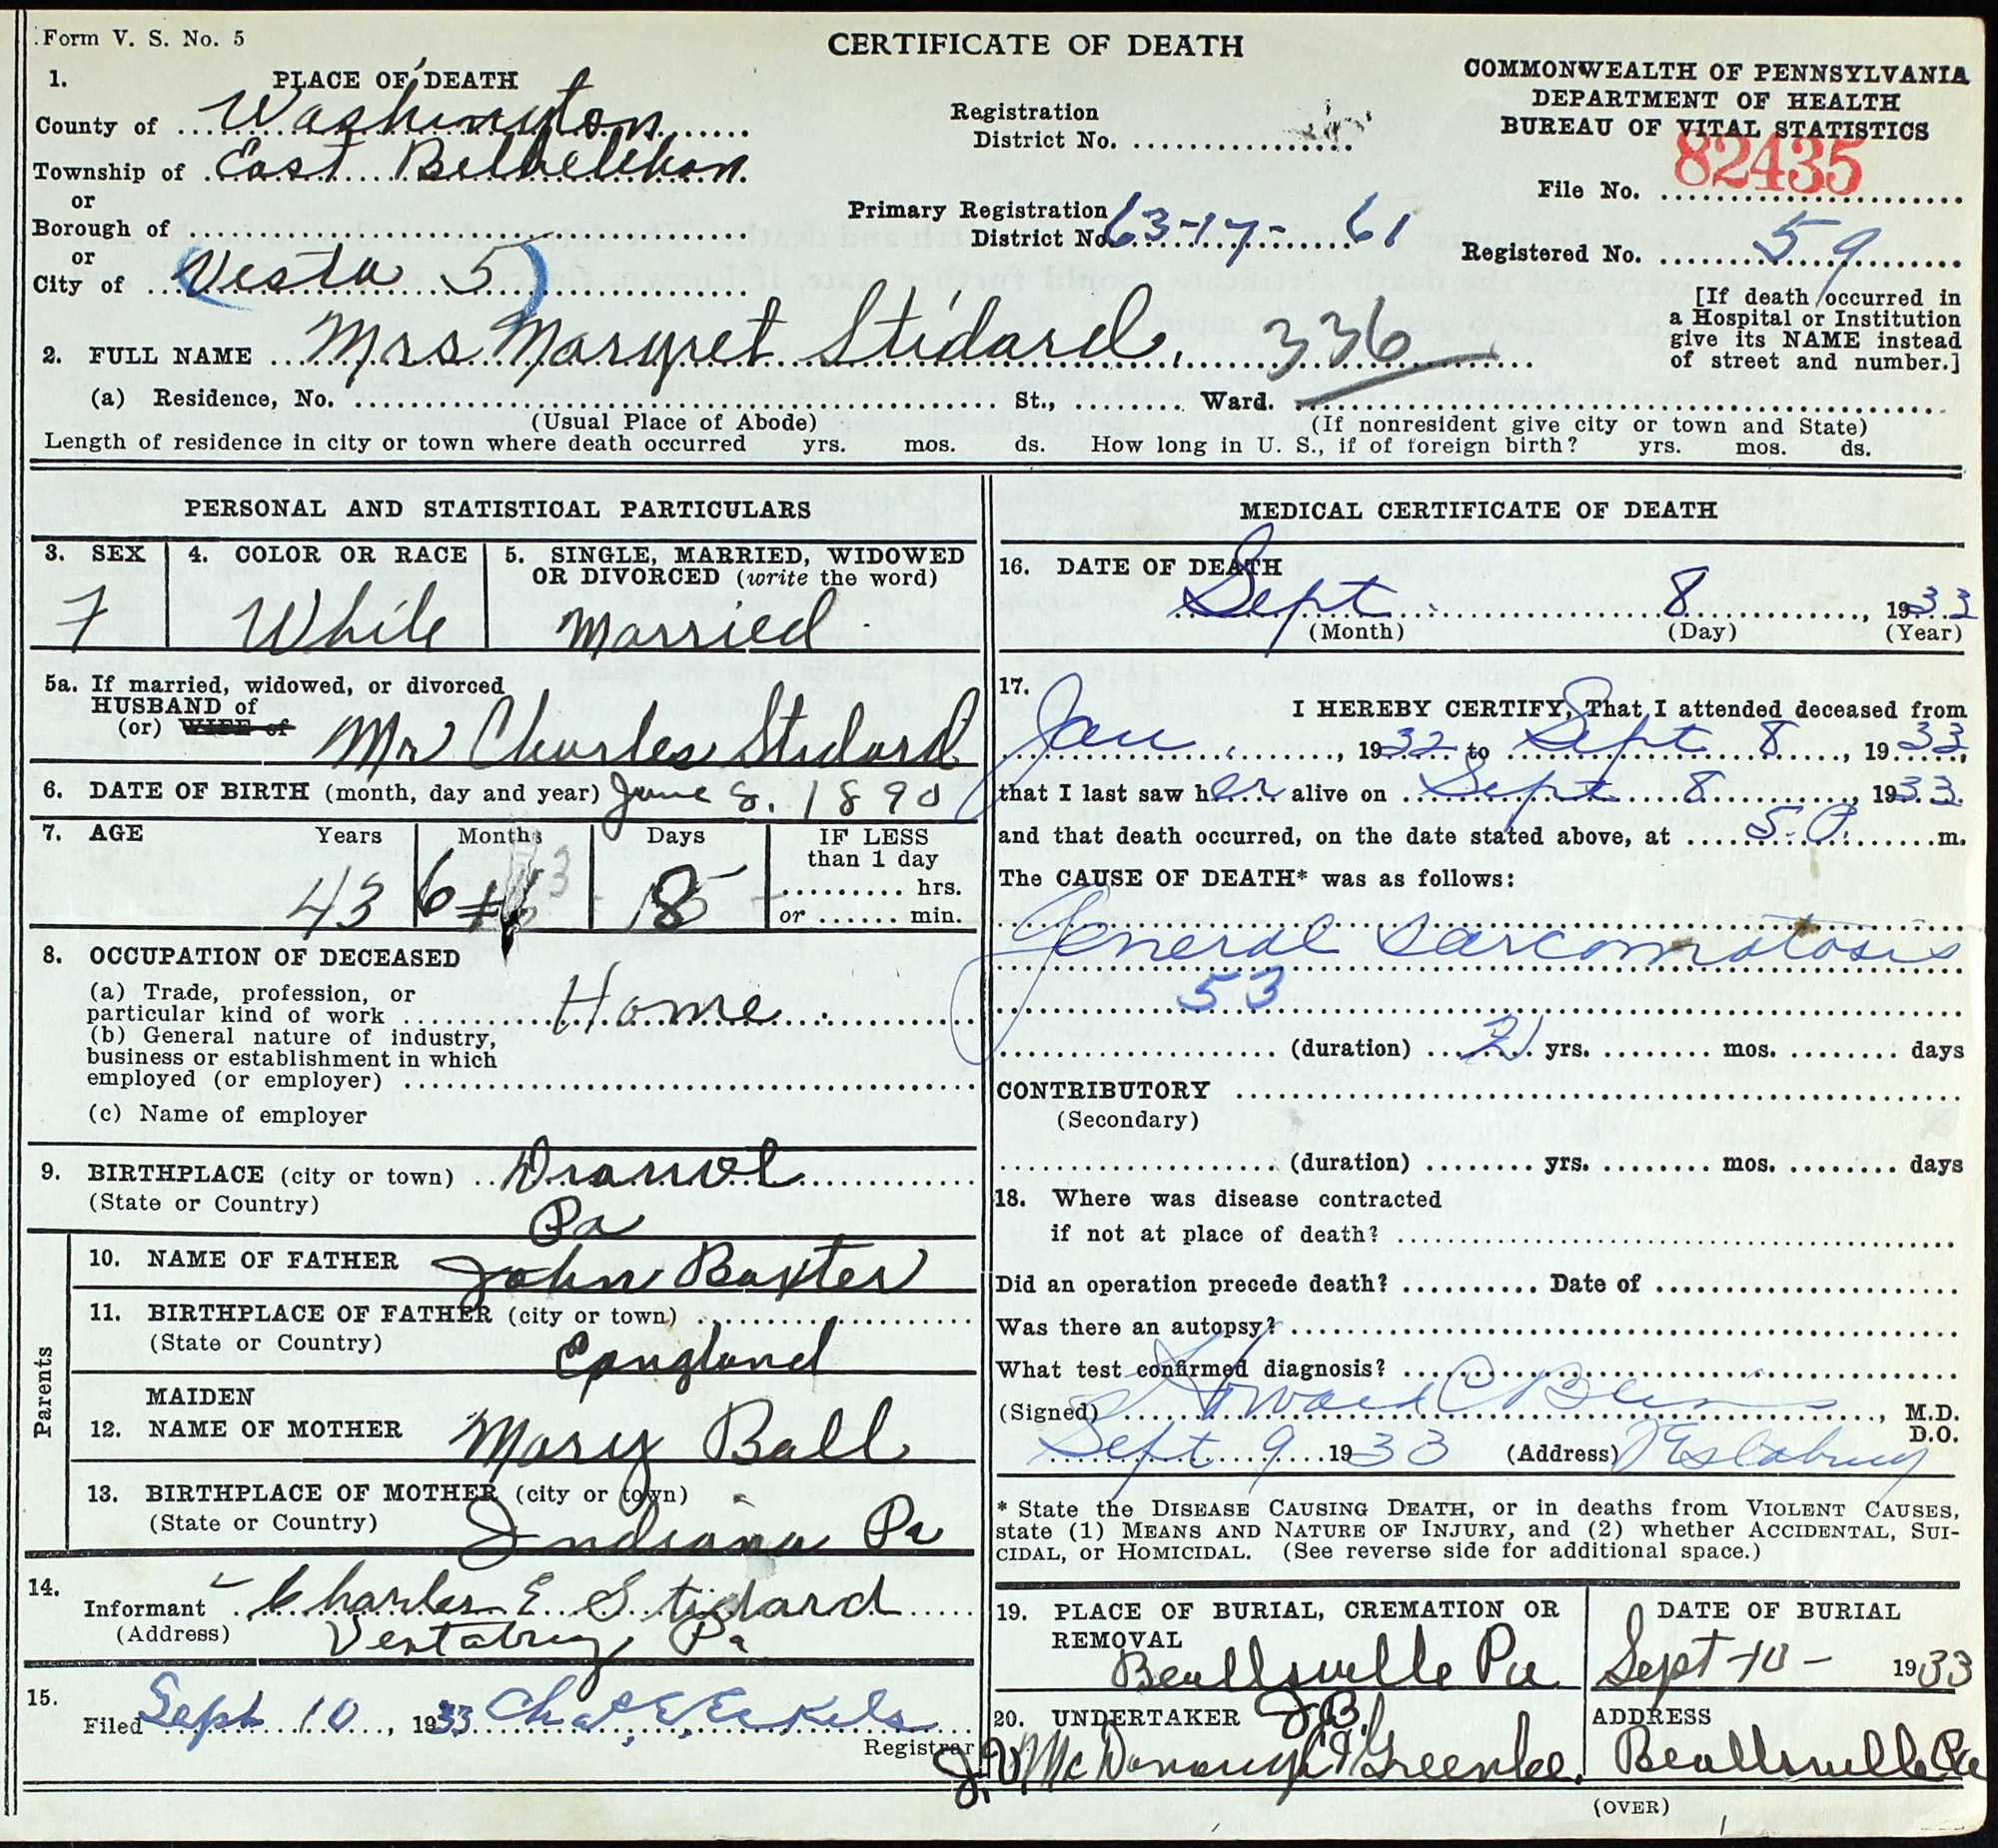 Form V. S. No. 5
CERTIFICATE OF DEATH
COMMONWEALTH OF PENNSYLVANIA
DEPARTMENT OF HEALTH
BUREAU OF VITAL STATISTICS
1. PLACE OF DEATH
County of Washington
Township of East
or
Borough of
or
City of Vesta 5
Registration
District No.
Primary Registration
District No. 63-17-61
File No. 82435
Registered No. 59
[If death occurred in
a Hospital or Institution
give its NAME instead
of street and number.]
2. FULL NAME Mrs Margret Stidard. 336
(a) Residence, No. St., Ward.
(Usual Place of Abode) (If nonresident give city or town and State)
Length of residence in city or town where death occurred yrs. mos. ds. How long in U. S., if of foreign birth? yrs. mos. ds.
PERSONAL AND STATISTICAL PARTICULARS
3. SEX 4. COLOR OR RACE 5. SINGLE, MARRIED, WIDOWED
OR DIVORCED (write the word)
F White Married
5a. If married, widowed, or divorced
HUSBAND of
(or) WIFE of Mr Charles Stidard
6. DATE OF BIRTH (month, day and year) June 8. 1890
7. AGE Years Months Days IF LESS
than 1 day
hrs.
or min.
43 6 3 8
8. OCCUPATION OF DECEASED
(a) Trade, profession, or
particular kind of work Home
(b) General nature of industry,
business or establishment in which
employed (or employer)
(c) Name of employer
9. BIRTHPLACE (city or town)
(State or Country) Pa
Parents
10. NAME OF FATHER John Baxter
11. BIRTHPLACE OF FATHER (city or town)
(State or Country) England
MAIDEN
12. NAME OF MOTHER Mary Ball
13. BIRTHPLACE OF MOTHER (city or town)
(State or Country) Indiana Pa
14.
Informant Charles E. Stidard
(Address) Vestaburg, Pa
15.
Filed Sept 10, 1933 Chas E Eckels
Registrar
MEDICAL CERTIFICATE OF DEATH
16. DATE OF DEATH
Sept 8, 1933
(Month) (Day) (Year)
17.
I HEREBY CERTIFY, That I attended deceased from
Jan, 1932 to Sept 8, 1933,
that I last saw her alive on Sept 8, 1933.
and that death occurred, on the date stated above, at 5. P. m.
The CAUSE OF DEATH* was as follows:
General Sarcomatosis
53
(duration) 2 yrs. mos. days
CONTRIBUTORY
(Secondary)
(duration) yrs. mos. days
18. Where was disease contracted
if not at place of death?
Did an operation precede death? Date of
Was there an autopsy?
What test confirmed diagnosis?
(Signed) Howard C, M.D.
D.O.
Sept 9 1933 (Address) Vestaburg
* State the DISEASE CAUSING DEATH, or in deaths from VIOLENT CAUSES,
state (1) MEANS AND NATURE OF INJURY, and (2) whether ACCIDENTAL, SUI-
CIDAL, or HOMICIDAL. (See reverse side for additional space.)
19. PLACE OF BURIAL, CREMATION OR
REMOVAL
Beallsville Pa
DATE OF BURIAL
Sept-10- 1933
20. UNDERTAKER J B.
J. V McDonough & Greenlee.
ADDRESS
Beallsville Pa
(OVER)